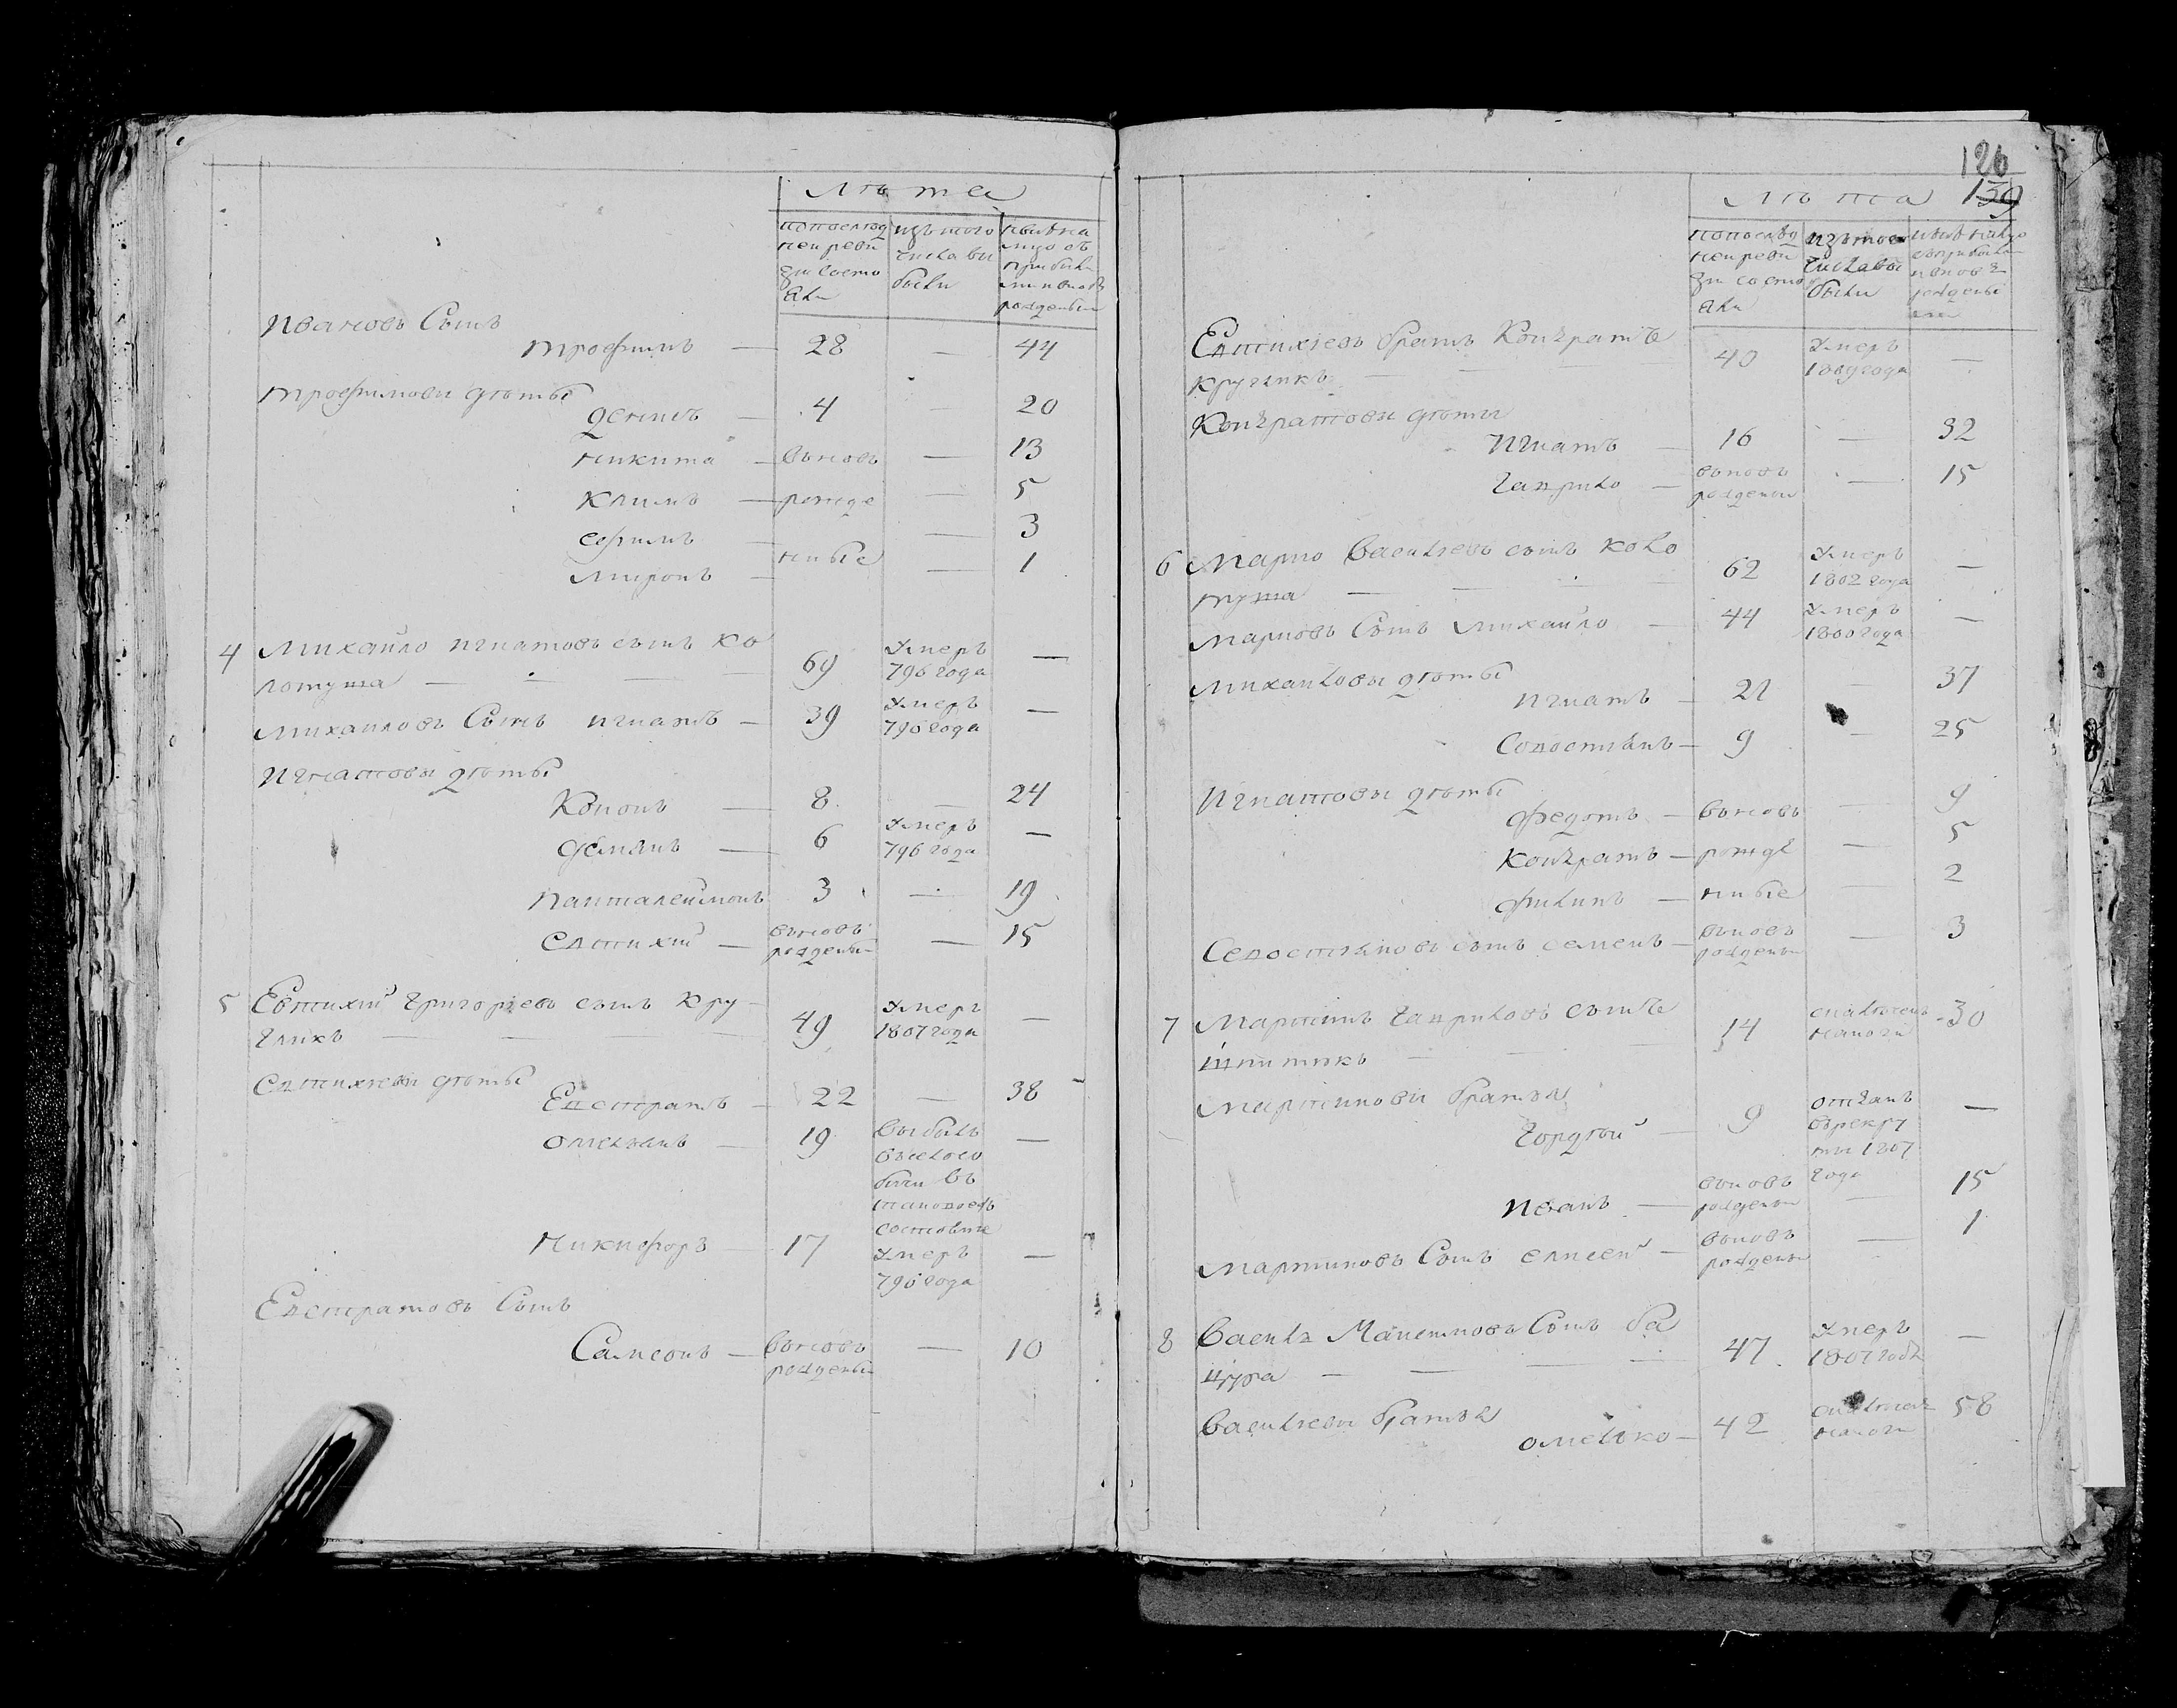 Лѣта
попослѣд
ней реви
зіи состо
яли
изътого
числа вы
были
Ивановъ Сынъ
трофимъ — 28 — 44
трофимовы дѣты
денисъ — 4 — 20
никита — вьновь — 13
климъ — рожде — 5
ефимъ — 3
ніые
миронъ — 1
4 Михайло игнатовъ сынъ ко
лотуша — 69 Умеръ 796 года —
михаиловъ Сынъ игнатъ — 39 Умеръ 796 года —
Игнатовы дѣты
Кононъ — 8 — 24
демянъ — 6 Умеръ 796 года —
панталеймонъ 3 — 19
евтихій — вьновь рожденый — 15
5 Евтихій григориевъ сынъ кру
гликъ — 49 Умеръ 1807 года —
Евтихиевы дѣты
Евстратъ — 22 — 38
омельянъ — 19 выбылъ —
Никифоръ 17 Умеръ 796 года —
Евстратовъ Сынъ
Самсонъ — вьновь рожденый — 10
126
139
Лѣта
попослѣд
ней реви
зіи состо
яли
изътого
числавы
были
Евтихіевъ братъ Кондратъ
кругликъ — 40 Умеръ 1809 года —
Кондратовы дѣты
Игнатъ — 16 — 32
гаврило — вьновь рожденый — 15
6 Марко Васильевъ сынъ коло
туша — 62 Умеръ 1802 года —
марковъ Сынъ михайло — 44 Умеръ 1800 года —
михайловы дѣты
игнатъ — 21 — 37
Савостиянъ — 9 — 25
Игнатовы дѣты
федотъ — вьновь — 9
кондратъ — рожде — 5
филипъ — ніые — 2
Севостияновъ сынъ семенъ — вьновь рожденый — 3
7 Мартинъ гавриловъ сынъ
шпитякъ — 14 30
Мартиновы братья
гордѣй — 9 отданъ
върекру
ты 1807
года —
иванъ — вьновь рожденый — 15
мартиновъ Сынъ елисей — вьновь рожденый — 1
8 Василь Сынъ ба
цура — 47 Умеръ 1807 года —
Васильевы братья
омелько — 42 58